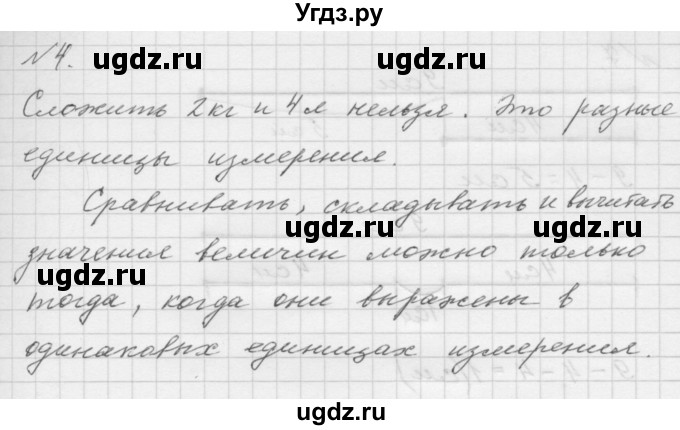 Угдз.ру
№4.
ugdz.ru ugdz.ru
Сложить 2 кг и 4 л нельзя. Это разные
единицы измерения.
Сравнивать, складывать и вычитать
ugdz.ru ugdz.ru
значения величин можно только
ugdz.ru ugdz.ru
тогда, когда они выражены в
одинаковых единицах измерения.
ugdz.ru ugdz.ru
ugdz.ru